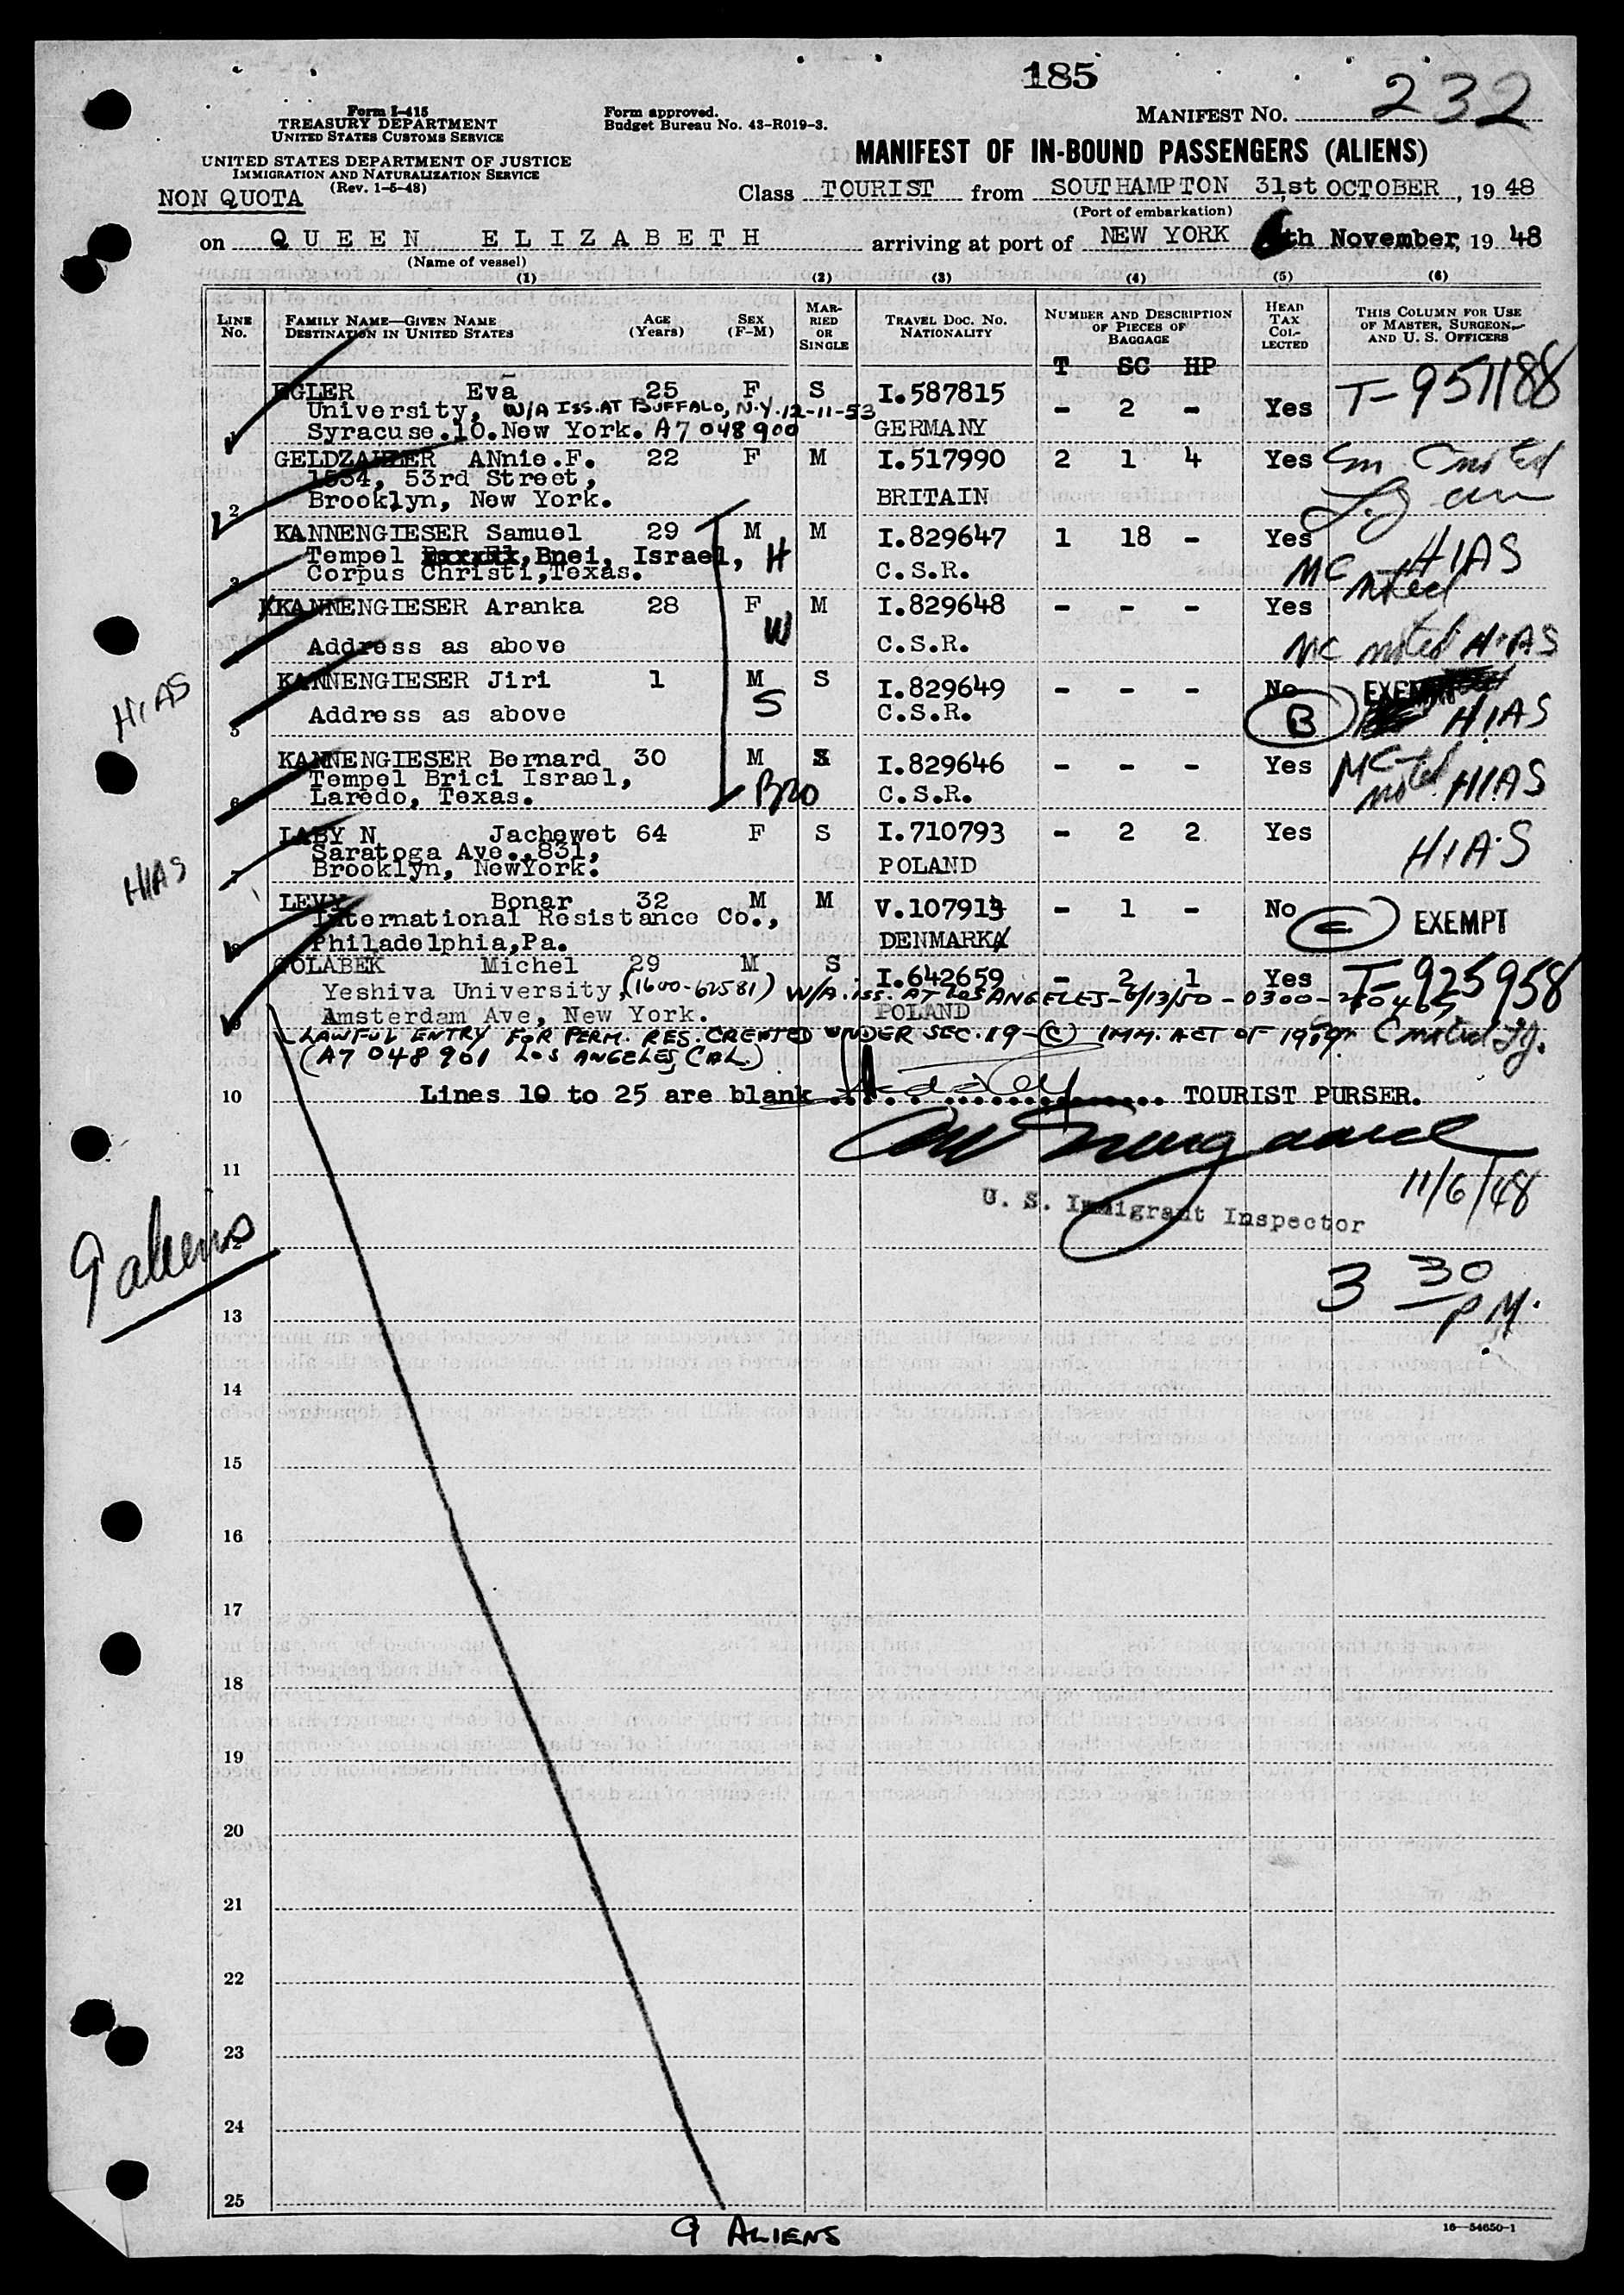 185
Form I-415
TREASURY DEPARTMENT
UNITED STATES CUSTOMS SERVICE
Form approved.
Budget Bureau No. 43-R019-3.
MANIFEST NO. 232
UNITED STATES DEPARTMENT OF JUSTICE
IMMIGRATION AND NATURALIZATION SERVICE
(Rev. 1-5-48)
MANIFEST OF IN-BOUND PASSENGERS (ALIENS)
NON QUOTA
Class TOURIST from SOUTHAMPTON 31st OCTOBER, 1948
(Port of embarkation)
on QUEEN ELIZABETH arriving at port of NEW YORK 6th November, 1948
(Name of vessel)
(1) (2) (3) (4) (5) (6)
LINE No. FAMILY NAME—GIVEN NAME DESTINATION IN UNITED STATES AGE (Years) SEX (F-M) MARRIED OR SINGLE TRAVEL DOC. NO. NATIONALITY NUMBER AND DESCRIPTION OF PIECES OF BAGGAGE HEAD TAX COLLECTED THIS COLUMN FOR USE OF MASTER, SURGEON, AND U. S. OFFICERS
T SC HP
EGLER Eva 25 F S I.587815 - 2 - Yes T-951188
University, W/A ISS. AT BUFFALO, N.Y. 12-11-53
Syracuse.10.New York. A7 048 900 GERMANY
GELDZAHLER ANnie.F. 22 F M I.517990 2 1 4 Yes
1534, 53rd Street,
2 Brooklyn, New York. BRITAIN
KANNENGIESER Samuel 29 M M I.829647 1 18 - Yes HIAS
Tempel Bnei, Israel, H
3 Corpus Christi,Texas. C.S.R. MC noted
KANNENGIESER Aranka 28 F M I.829648 - - - Yes
W
4 Address as above C.S.R. MC noted HIAS
KANNENGIESER Jiri 1 M S I.829649 - - - No EXEMPT
HIAS
5 Address as above S C.S.R. B HIAS
KANNENGIESER Bernard 30 M S I.829646 - - - Yes MC noted HIAS
Tempel Brici Israel,
6 Laredo, Texas. Bro C.S.R.
LABY N Jachewet 64 F S I.710793 - 2 2 Yes HIAS
Saratoga Ave.,831,
HIAS
7 Brooklyn, NewYork. POLAND
LEVY Bonar 32 M M V.107913 - 1 - No C EXEMPT
International Resistance Co.,
8 Philadelphia,Pa. DENMARK
GOLABEK Michel 29 M S I.642659 - 2 1 Yes T-925958
Yeshiva University, (1600-62581) W/A. iss. AT LOS ANGELES-6/13/50-0300-
9 Amsterdam Ave, New York. POLAND
LAWFUL ENTRY FOR PERM. RES. CREATED UNDER SEC. 19-(C) IMM. ACT OF
(A7 048 901 LOS ANGELES, CAL.)
10 Lines 10 to 25 are blank TOURIST PURSER.
11
11/6/48
U. S. Immigrant Inspector
9 aliens
12
3 30 P.M.
13
14
15
16
17
18
19
20
21
22
23
24
25
9 ALIENS
16—54650-1